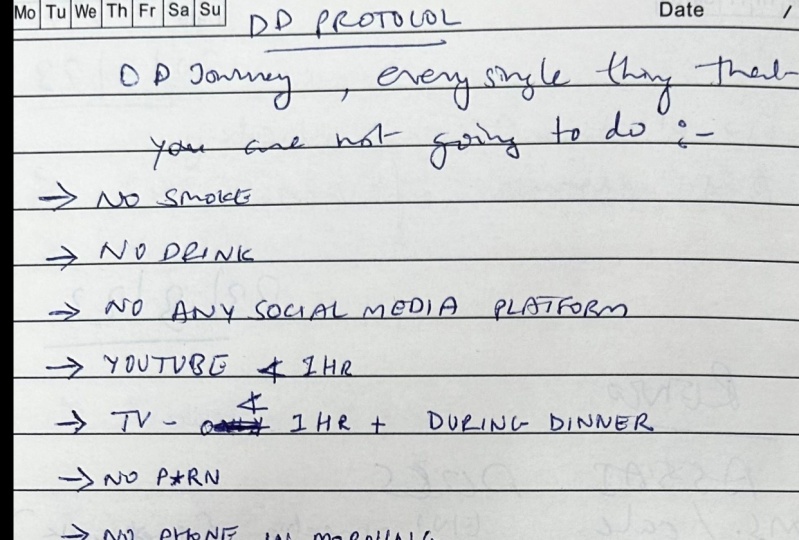 Mo Tu We Th Fr Sa Su
DD PROTOCOL
Date /
DD Journey, every single thing that
you are not going to do :-
→ NO SMOKE
→ NO DRINK
→ NO ANY SOCIAL MEDIA PLATFORM
→ YOUTUBE < 1HR
→ TV - < 1HR + DURING DINNER
→ NO P*RN
→ NO PHONE IN MORNING